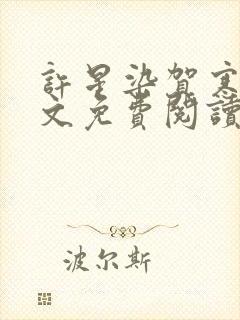 許星染賀
文免費閱讀
波尔斯